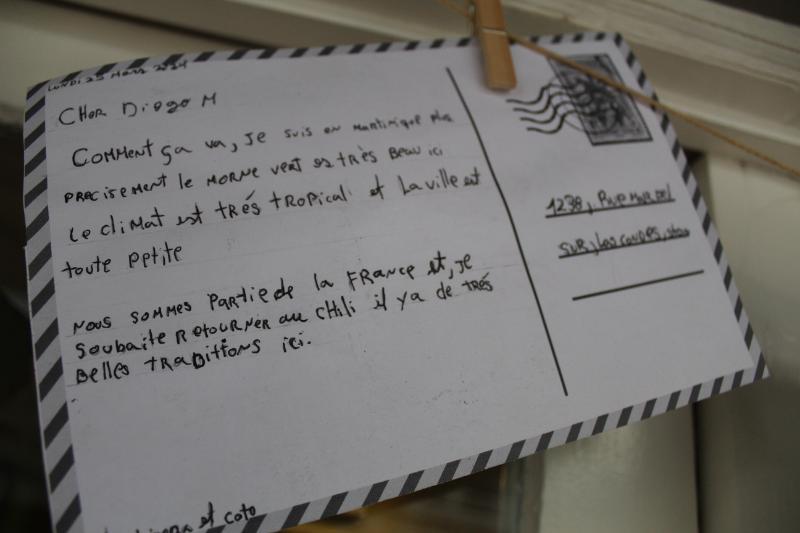 LUNDI 25 MARS 2024
CHer Diego M
COMMENT ça va, Je suis en martinique plus
PRECISEMENT le MORNE vert es TRÈS BEAU ici
Le cliMAT est TRÉS TROPical et La ville est
toute Petite
NOUS SOMMES PARTIE de la FRANCE et, Je
Souhaite RETOURNER au CHili il ya de TRÉS
Belles TRADITIONS ici.
et coto
1238,
SUR, Las CONDES,